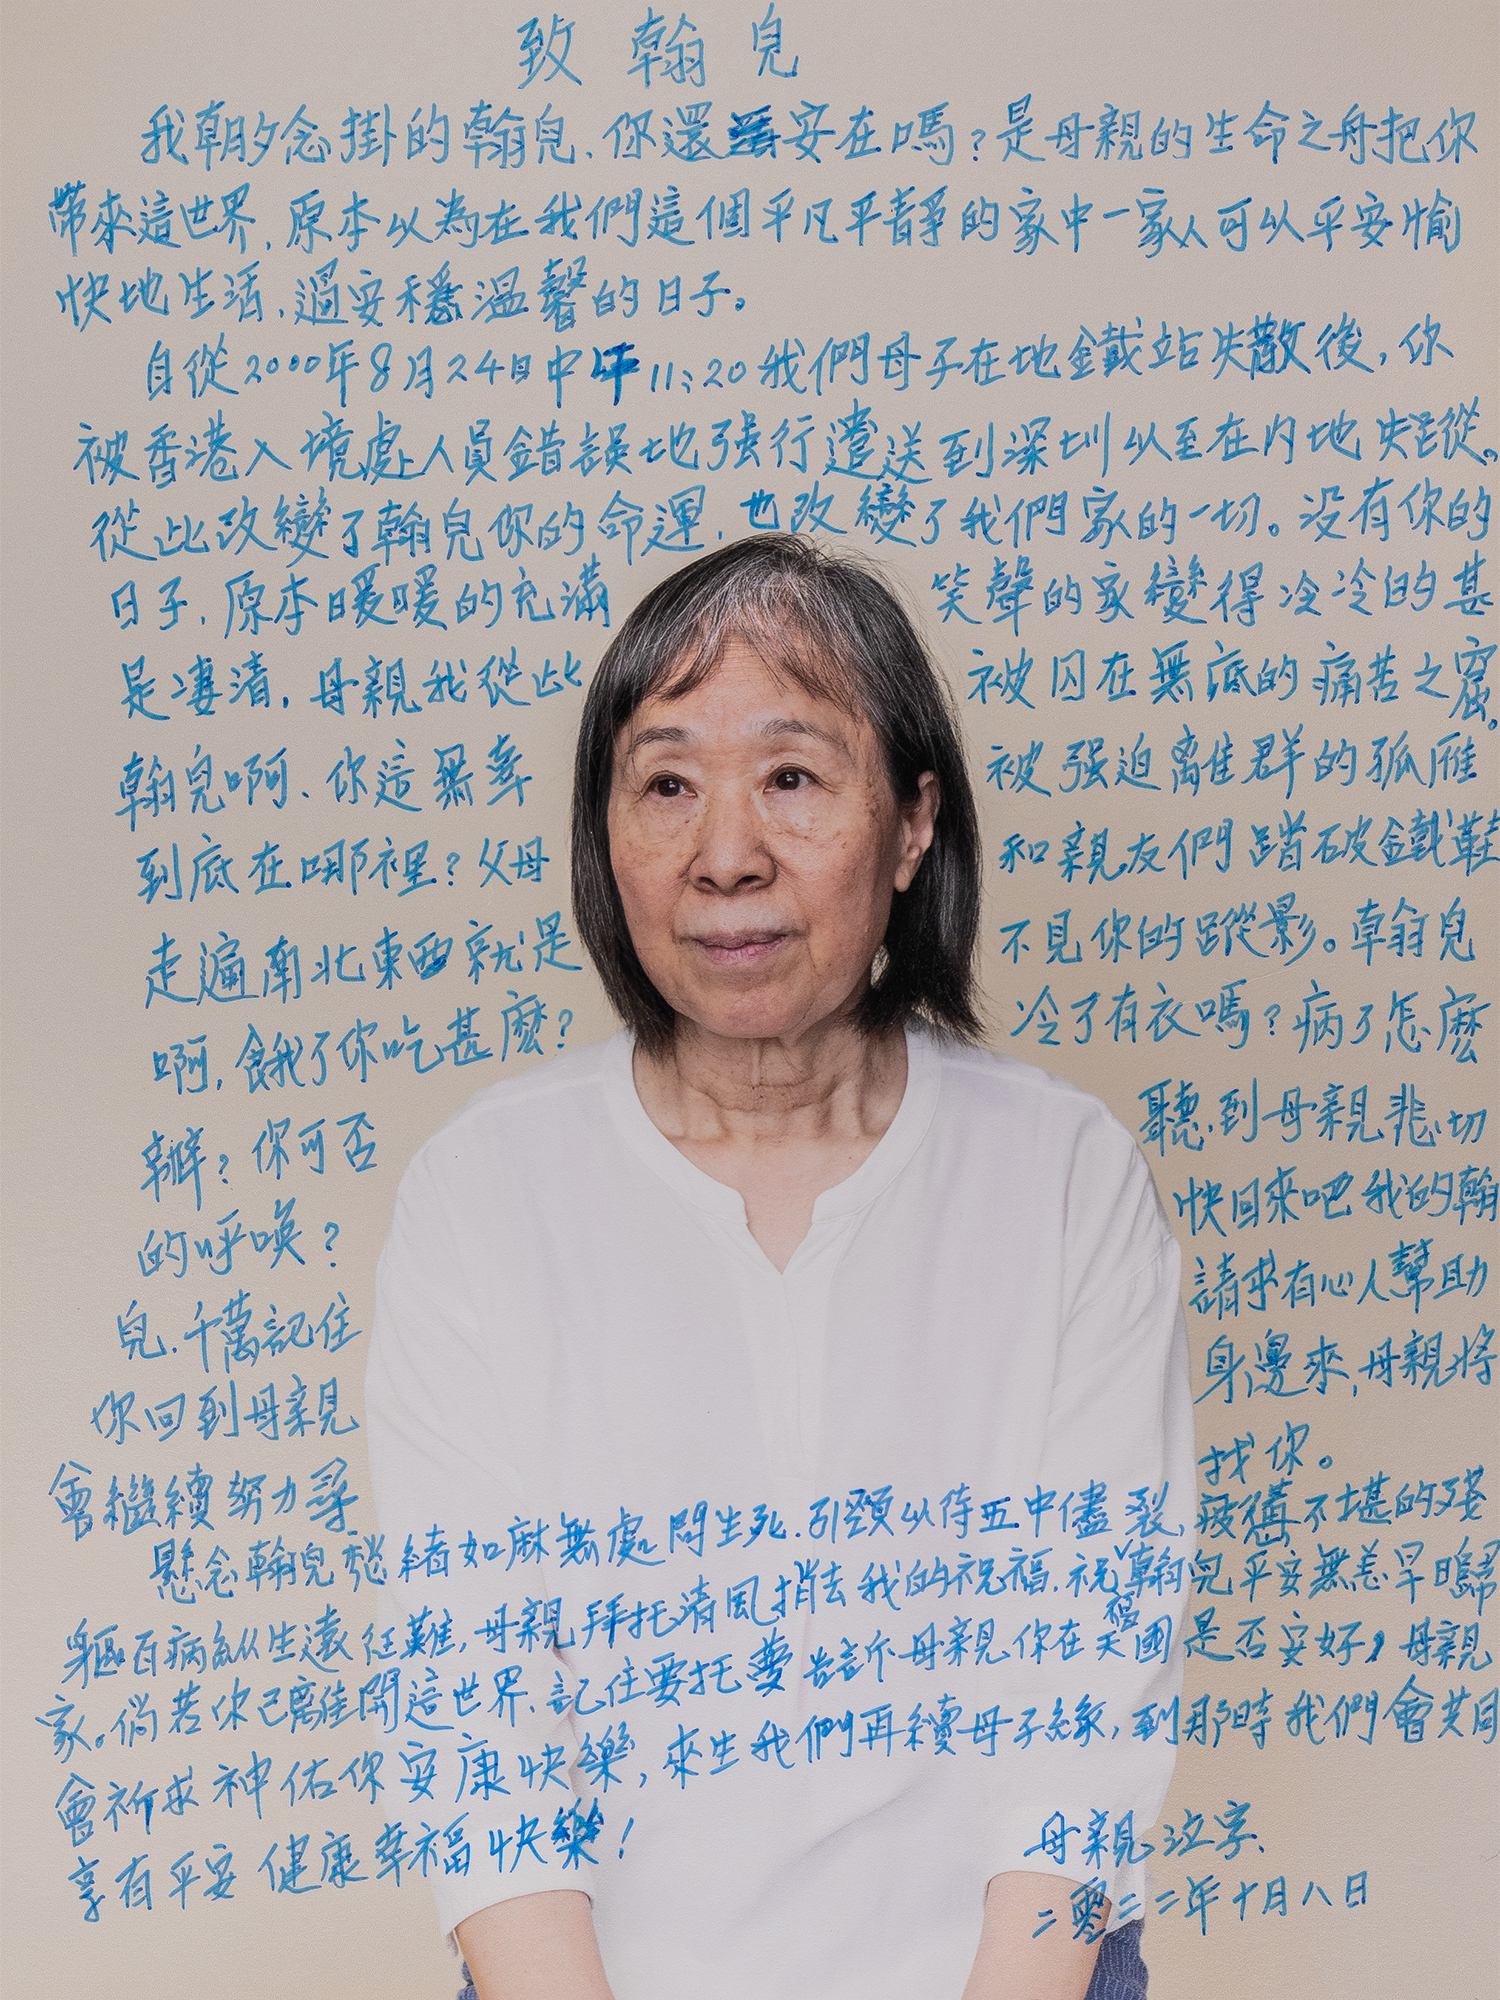 致翰兒
我朝夕念掛的翰兒、你還安在嗎？是母親的生命之舟把你
帶來這世界，原本以為在我們這個平凡平靜的家中一家人可以平安愉
快地生活，過安穩溫馨的日子。
自從2000年8月24日中午11:20我們母子在地鐵站失散後，你
被香港入境處人員錯誤地強行遣送到深圳以至在內地失蹤。
從此改變了翰兒你的命運，也改變了我們家的一切。沒有你的
日子，原本暖暖的充滿笑聲的家變得冷冷的甚
是凄清，母親我從此被囚在無底的痛苦之窟。
翰兒啊、你這無辜被強迫離群的孤雁
到底在哪裡？父母和親友們踏破鐵鞋
走遍南北東西就是不見你的蹤影。翰兒
啊，餓了你吃甚麼？冷了有衣嗎？病了怎麼
辦？你可否聽到母親悲切
的呼喚？快回來吧我的翰
兒，千萬記住請求有心人幫助
你回到母親身邊來，母親將
會繼續努力尋找你。
懸念翰兒愁緒如麻無處問生死，引頸以待五中儘裂，疲憊不堪的殘
軀百病糾生遠征難，母親拜托清風捎去我的祝福，祝翰兒平安無恙早日歸
家。倘若你已離開這世界，記住要托夢告訴母親你在天國是否安好，母親
會祈求神佑你安康快樂，來生我們再續母子緣，到那時我們會共同
享有平安健康幸福快樂！
母親泣字、
二零二二年十月八日